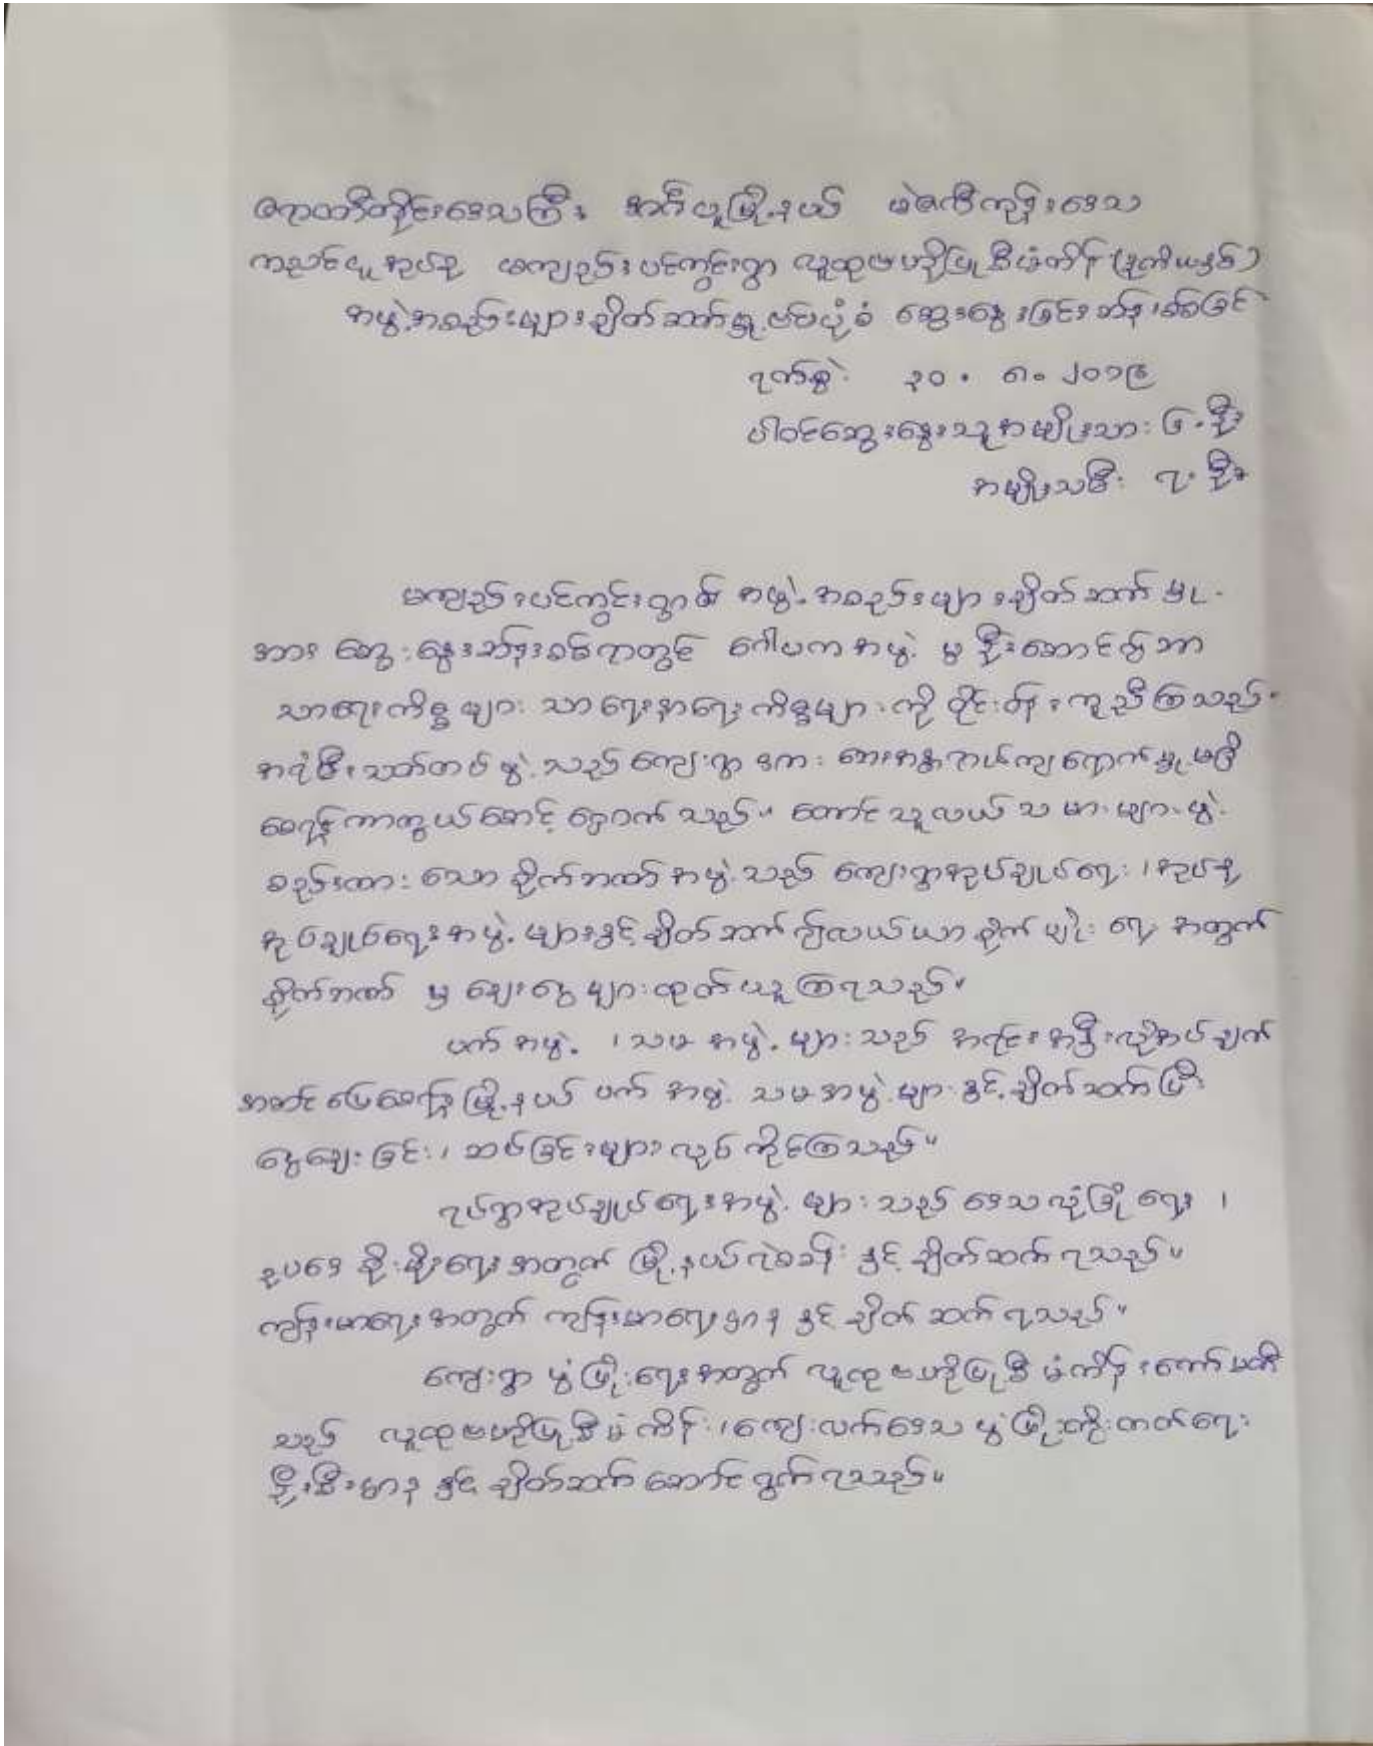 ဧရာဝတီတိုင်းဒေသကြီး အင်္ဂပူမြို့နယ် ဖဲစလီကုန်းဒေသ
ကညင်ငူအုပ်စု မကျည်းပင်ကွင်းရွာ လူထုဗဟိုပြုစီမံကိန်း (ဒုတိယနှစ်)
အဖွဲ့အစည်းများချိတ်ဆက်မှု့ပုံစံ ဆွေးနွေးခြင်းဆန်းစစ်ခြင်း
ရက်စွဲ ၃၀.၈.၂၀၁၉
ပါဝင်ဆွေးနွေးသူအမျိုးသား ၆.ဦး
အမျိုးသမီး ၇.ဦး
မကျည်းပင်ကွင်းရွာ၏ အဖွဲ့အစည်းများချိတ်ဆက်မှု
အား ဆွေးနွေးဆန်းစစ်ရာတွင် ဂေါပကအဖွဲ့ မှ ဦးဆောင်၍ဘာ
သာရေးကိစ္စများ သာရေးနာရေးကိစ္စများကို ဝိုင်းဝန်းကူညီကြသည်။
အရံမီးသတ်တပ်ဖွဲ့သည် ကျေးရွာဒကား ဘေးအန္တရာယ်ကျရောက်မှု မရှိ
စေရန် ကာကွယ်စောင့်ရှောက်သည်။ တောင်သူလယ်သမားများဖွဲ့
စည်းထားသော စိုက်ဘဏ်အဖွဲ့သည် ကျေးရွာအုပ်ချုပ်ရေး၊ အုပ်စု
အုပ်ချုပ်ရေးအဖွဲ့များနှင့်ချိတ်ဆက်၍လယ်ယာစိုက်ပျိုးရေးအတွက်
စိုက်ဘဏ် မှ ချေးငွေများထုတ်ယူကြရသည်။
ပက်အဖွဲ့၊ သမအဖွဲ့များသည် အရင်းအနှီးလိုအပ်ချက်
အဆင်ပြေစေရန် မြို့နယ် ပက်အဖွဲ့ သမအဖွဲ့များနှင့်ချိတ်ဆက်ပြီး
ငွေချေးခြင်း၊ ဆပ်ခြင်းများလုပ်ကိုင်ကြသည်။
ရပ်ရွာအုပ်ချုပ်ရေးအဖွဲ့များသည် ဒေသလုံခြုံရေး၊
ဥပဒေစိုးမိုးရေးအတွက် မြို့နယ်ရဲစခန်းနှင့်ချိတ်ဆက်ရသည်။
ကျန်းမာရေးအတွက် ကျန်းမာရေးဌာနနှင့်ချိတ်ဆက်ရသည်။
ကျေးရွာဖွံ့ဖြိုးရေးအတွက် လူထုဗဟိုပြုစီမံကိန်းကော်မတီ
သည် လူထုဗဟိုပြုစီမံကိန်း၊ ကျေးလက်ဒေသဖွံ့ဖြိုးတိုးတက်ရေး
ဦးစီးဌာနနှင့်ချိတ်ဆက်ဆောင်ရွက်ရသည်။